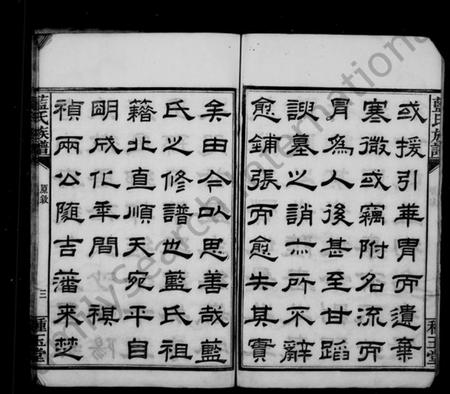 藍氏族譜
種玉堂
或援引華胄而遺棄
寒微或竊附名流而
冒為人後甚至甘蹈
諛墓之誚亦所不辭
愈鋪張而愈失其實
矣由今以思善哉藍
氏之修譜也藍氏祖
籍北直順天宛平自
明成化年間 祺
禎兩公隨吉藩來楚
藍氏族譜
原敘
三
種玉堂
FamilySearch International